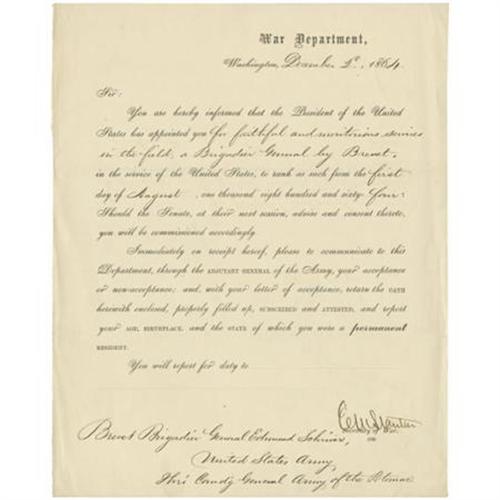 War Department,
Washington, December 2d., 1864.
Sir:
You are hereby informed that the President of the United
States has appointed you for faithful and meritorious services
in the field, a Brigadier General by Brevet,
in the service of the United States, to rank as such from the first
day of August, one thousand eight hundred and sixty-four:
Should the Senate, at their next session, advise and consent thereto,
you will be commissioned accordingly.
Immediately on receipt hereof, please to communicate to this
Department, through the ADJUTANT GENERAL of the Army, your acceptance
or non-acceptance; and, with your letter of acceptance, return the OATH
herewith enclosed, properly filled up, SUBSCRIBED and ATTESTED, and report
your AGE, BIRTHPLACE, and the STATE of which you were a permanent
RESIDENT.
You will report for duty to
Edwin M Stanton
Secretary of War.
Brevet Brigadier General Edmund Schriver,
United States Army,
Thro' Comd'g General Army of the Potomac